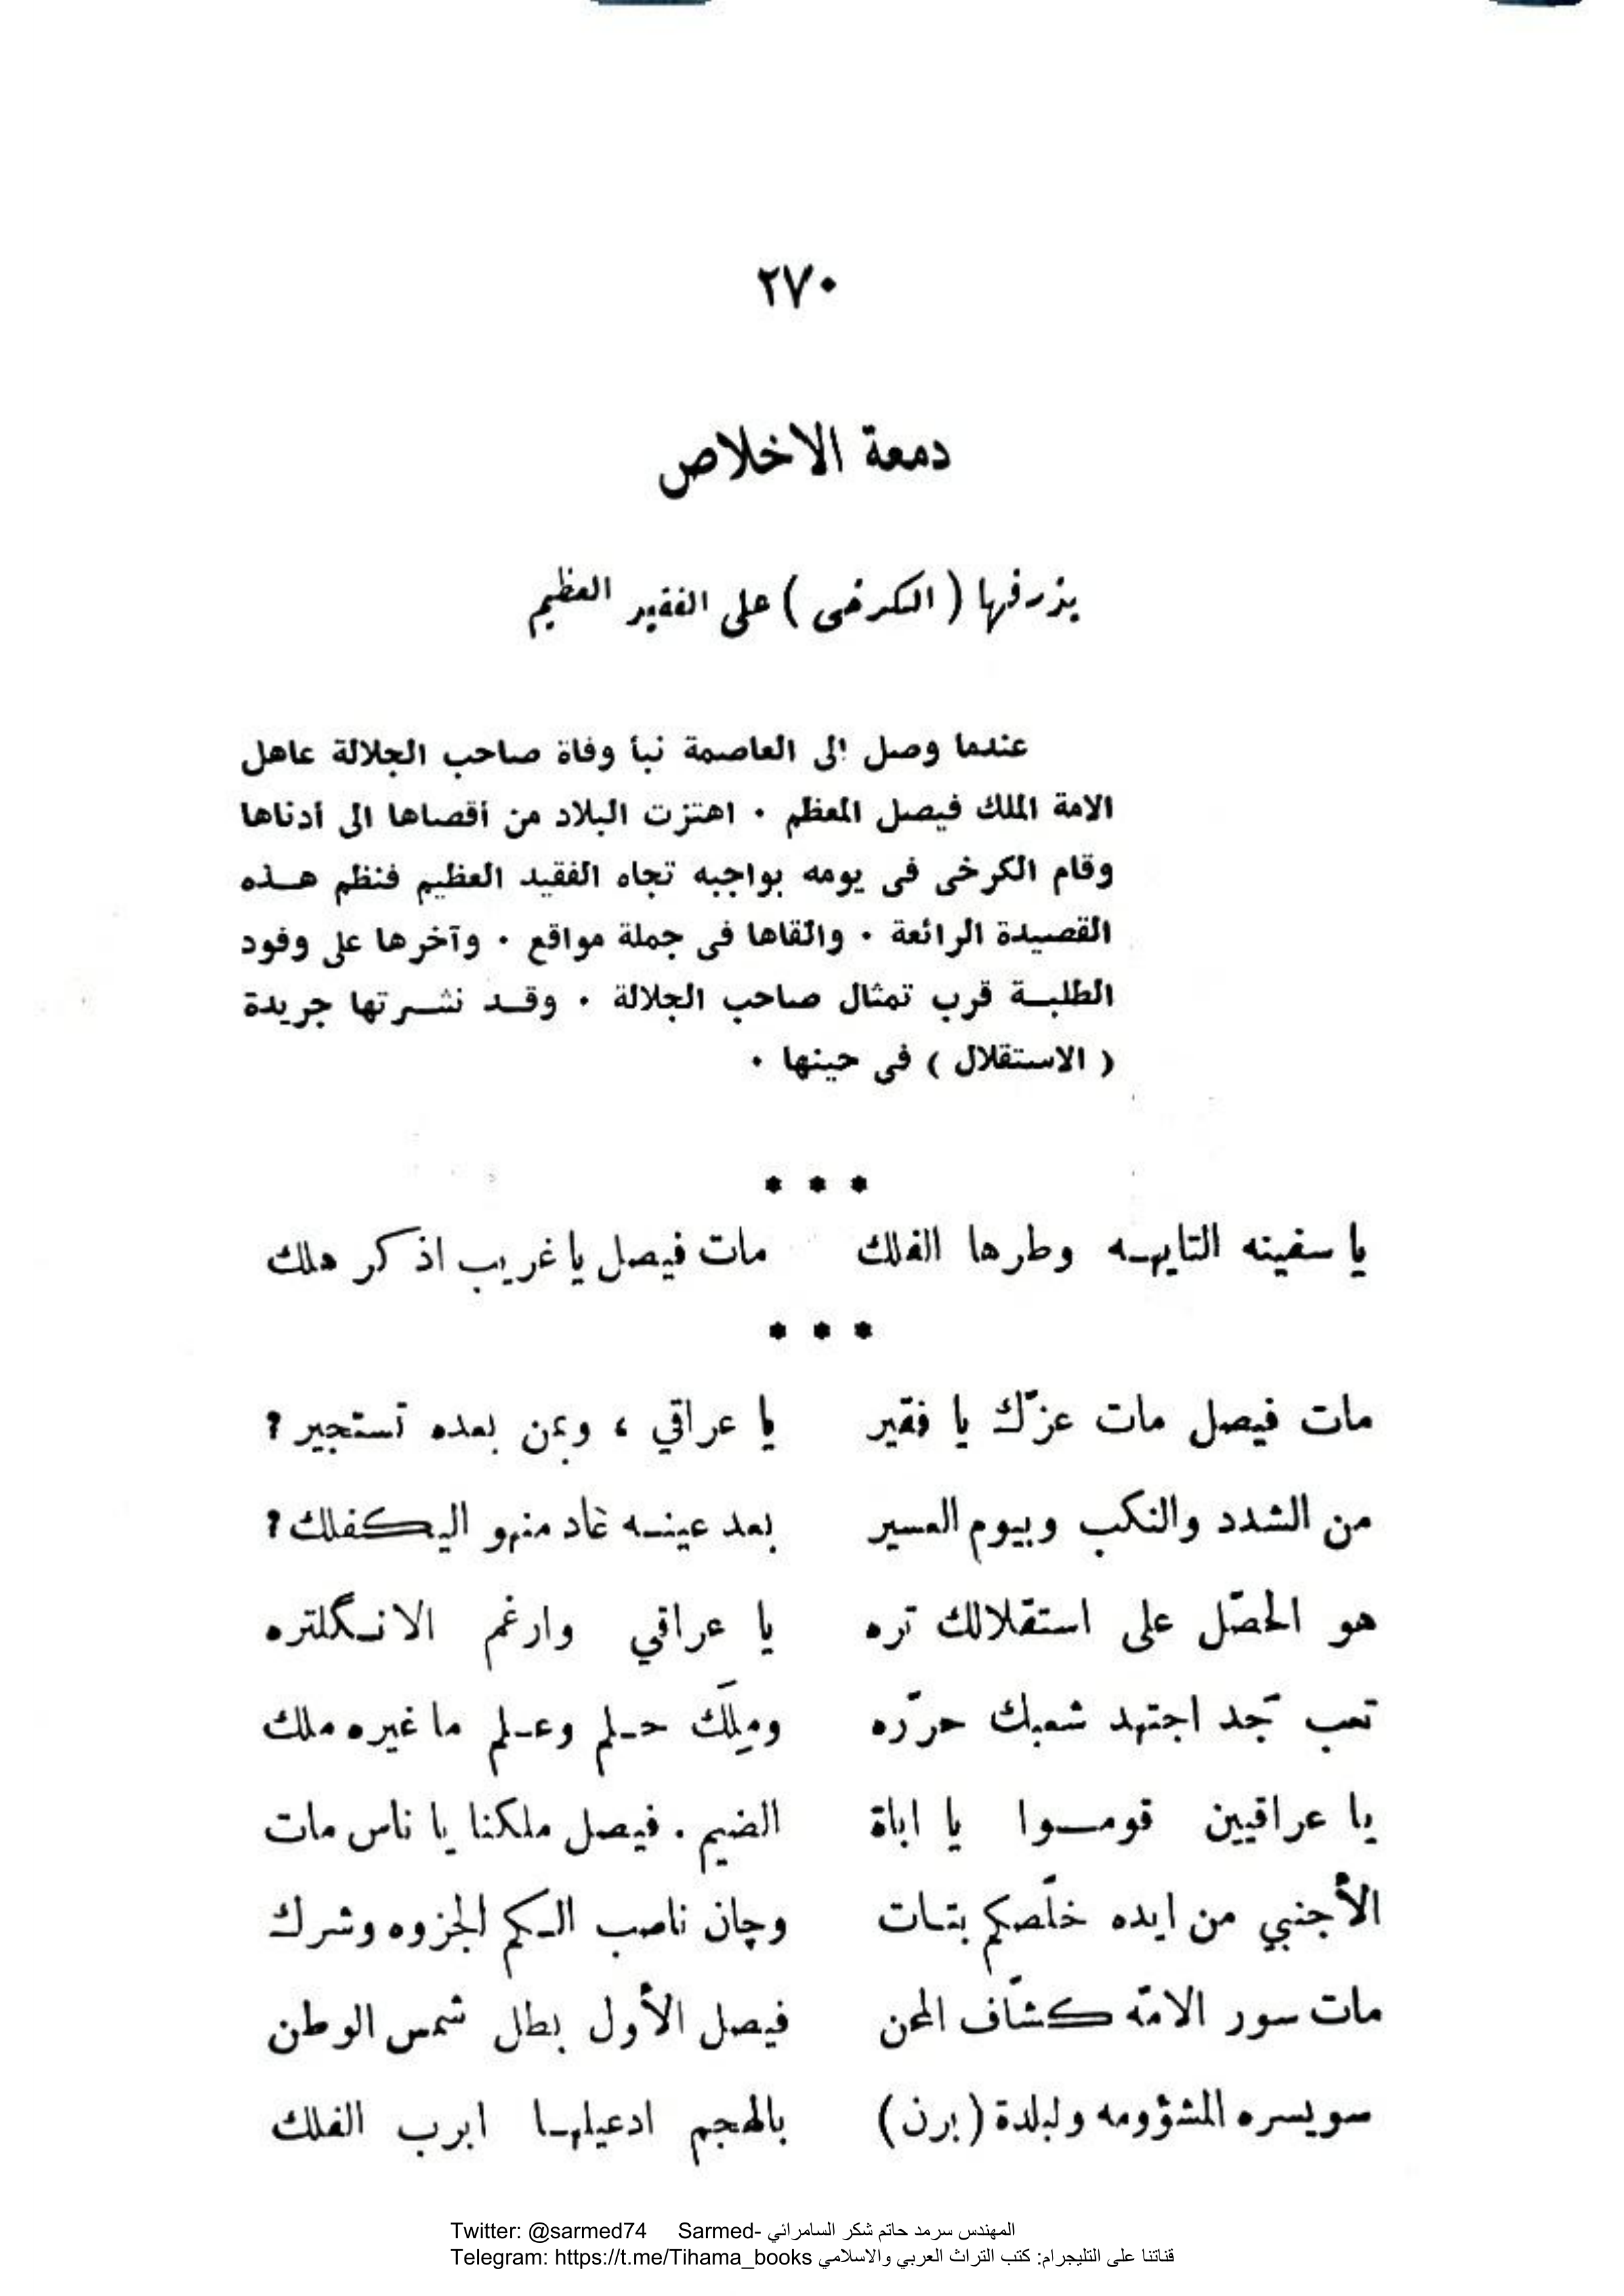 ٢٧٠
دمعة الاخلاص
يذرفها ( الكرخى ) على الفقيد العظيم
عندما وصل الى العاصمة نبأ وفاة صاحب الجلالة عاهل
الامة الملك فيصل المعظم ٠ اهتزت البلاد من أقصاها الى أدناها
وقام الكرخى فى يومه بواجبه تجاه الفقيد العظيم فنظم هـذه
القصيدة الرائعة ٠ والقاها فى جملة مواقع ٠ وآخرها على وفود
الطلبـة قرب تمثال صاحب الجلالة ٠ وقـد نشـرتها جريدة
( الاستقلال ) فى حينها ٠
* * *
يا سفينه التايهـه وطرها الفلك مات فيصل يا غريب اذكر هلك
* * *
مات فيصل مات عزّك يا فقير يا عراقي ، وبمن بعده تستجير ?
من الشدد والنكب وبيوم العسير بعد عينـه غاد منهو اليكفلك ?
هو الحصّل على استقلالك تره يا عراقي وارغم الانـگلتره
تعب جَد اجتهد شعبك حرّره وملِكَ حـلم وعـلم ما غيره ملك
يا عراقيين قومـوا يا اباة الضيم . فيصل ملكنا يا ناس مات
الأجنبي من ايده خلّصكم بتـات وچان ناصب الـكم الجزوه وشرك
مات سور الامّه كشّاف المحن فيصل الأول بطل شمس الوطن
سويسره المشؤومه ولبلدة ( برن ) بالهجم ادعيلهـا ابرب الفلك
Twitter: @sarmed74 Sarmed- المهندس سرمد حاتم شكر السامرائي
Telegram: https://t.me/Tihama_books قناتنا على التليجرام: كتب التراث العربي والاسلامي